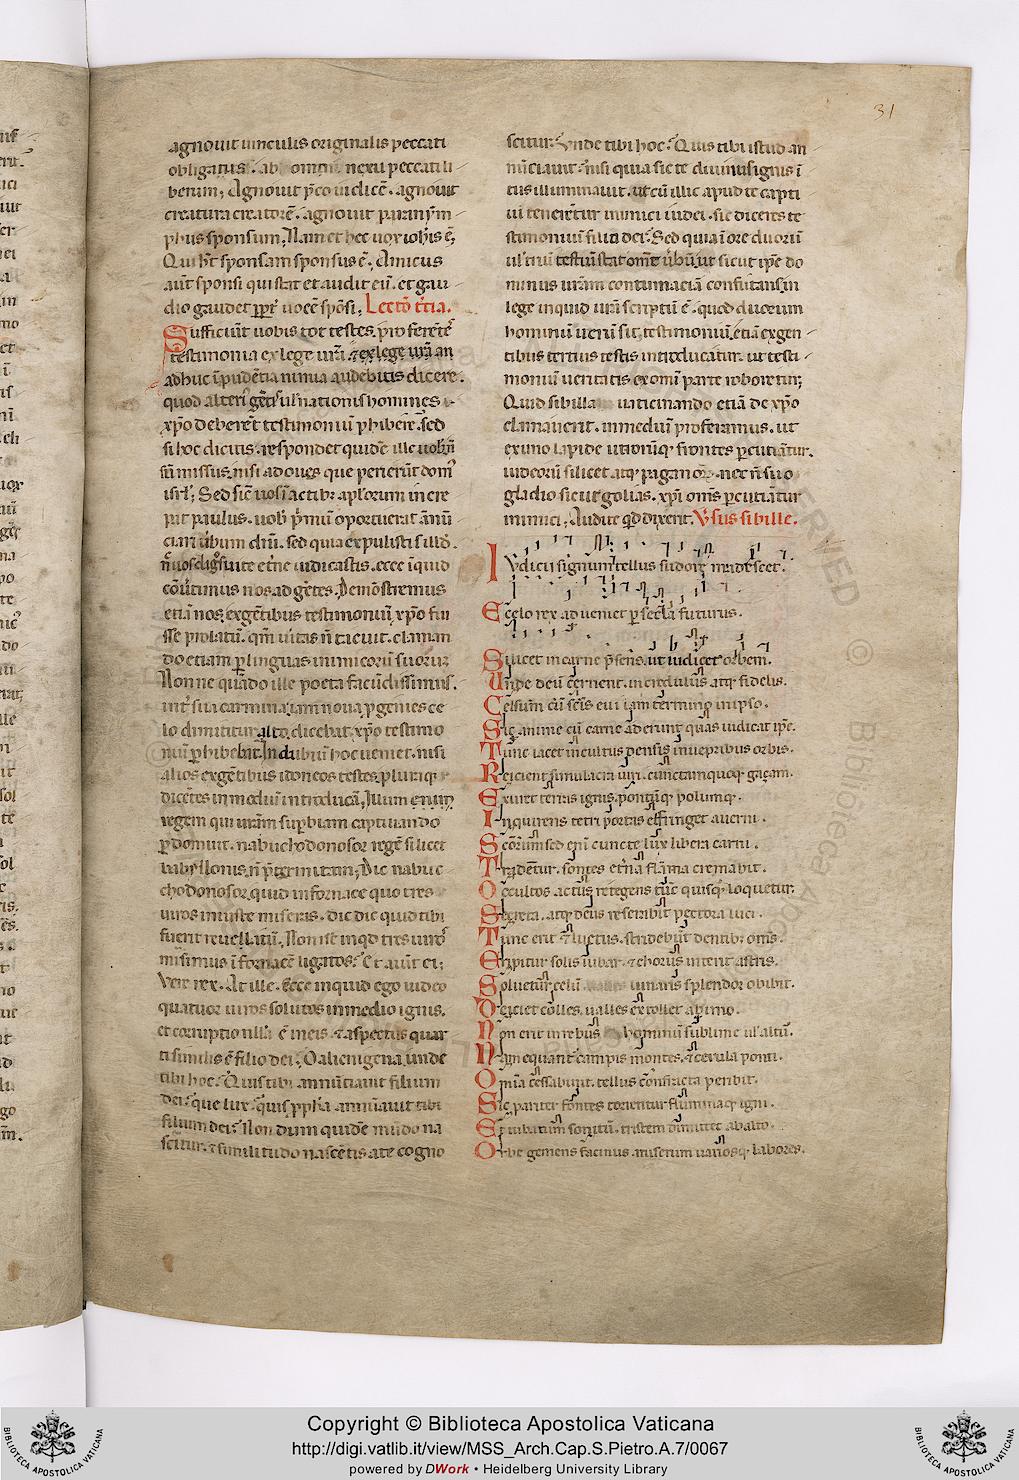 31
agnouit uinculis originalis peccati
obligatus. ab omni nexu peccati li
berum; Agnouit p̄co iudicē. agnouit
creatura creatorē. agnouit paranym
phus sponsum; Nam et hec uox ioh̄is ē;
Qui h̄t sponsam sponsus ē; Amicus
aūt sponsi qui stat et audit eū. et gau
dio gaudet ꝓpt̄ uocē spōsi; Lectō t̄cia.
Sufficiūt uobis tot testes
testimonia ex lege ur̄a. ⁊ ex lege ur̄a an
adhuc īpudētia nimia audebitis dicere.
quod alteri gēti ul̓ nationis homines
xp̄o deberēt testimoniū ꝓhibere. sed
si hoc dicitis. respondet quidē ille uobis n̄
sū missus. nisi ad oues que perierūt dom̓
isrl̓; Sed sic̄ uos ī actibꝫ apl̓orum incre
pat paulus. uob̓ p̓mū oportuerat ānū
ciari ūbum dn̄i. sed quia expulistis illd̓.
cōūtimus nos ad gētes. Demōstremus
etiā nos ex gētibus testimoniū xp̄o fui
sse prolatū. qm̄ uitas n̄ tacuit. claman
do etiam ꝑ linguas inimicorū suorum
Nonne quādo ille poeta facūdissimus.
int̄ sua carmina; iam noua ꝓgenies ce
lo dimittitur alto. dicebat. xp̄o testimo
niū ꝓhibebat. In dubiū hoc ueniet. nisi
alios ex gētibus idoneos testes. pluraq̄
dicētes in mediū introducā; Illum
regem qui ur̄am supbiam captiuando
ꝑdomuit. nabuchodonosor regē silicet
babyllonis. n̄ p̄t̄mittam; Dic nabuc
chodonosor. quid in fornace quo tres
uiros iniuste miseris. dic dic quid tibi
fuerit reuellatū. Nonne inqd̓ tres uiros
misimus ī fornacē ligatos? Et aiūt ei;
Vere rex. At ille. Ecce inquid ego uideo
quatuor uiros solutos in medio ignis.
et corruptio nulla ē in eis. ⁊ aspectus quar
ti similis ē filio dei; O alienigena. unde
tibi hoc? Quis tibi annūtiauit filium
dei? que lux? quis ꝓph̄a annūtiauit tibi
filium dei? Non dum quidē mūdo na
scitur. ⁊ similitudo nascētis a te cogno
scitur. Unde tibi hoc? Quis tibi istud an
nūciauit? nisi quia sic te diuinus ignis ī
tus illuminauit. ut cū illic apud te capti
ui tenerētur inimici iudei. sic diceres te
stimoniū filio dei? Sed quia ī ore duorū
ul̓ triū testiū stat om̄e ūbū. ut sicut ip̄e do
minus ur̄am contumaciā confutans. in
lege inquid ur̄a scriptū ē. quod duorum
hominū uerū sit testimoniū. etiā ex gen
tibus tertius testis introducātur. ut testi
moniū ueritatis ex omi parte roboretur;
Quid sibilla uaticinando etiā de xp̄o
clamauerit. in mediū proferamus. ut
ex uno lapide utrorūq̄ frontes ꝑcutiātur.
iudeorū silicet atqꝫ paganorꝫ. nec n̄ suo
gladio sicut golias. xp̄i om̄s ꝑcutiātur
inimici. Audite qd̓ dixerit. V̓sus sibille.
Iudicii signum tellus sudore madescet.
E celo rex adueniet ꝑ secl̓a futurus.
Silicet in carne p̄sens. ut iudicet orbem.
Unde deū cernent. incredulus atqꝫ fidelis.
Celsum cū scīs eui iam termino in ipso.
Sic anime cū carne aderunt quas iudicat ip̄e.
Tūnc iacet incultus densis in uepribus orbis.
Reicient simulacra uiri. cunctam quoqꝫ gaçam.
Exuret terras ignis. pontūq̄ polumq̄.
Inquirens tetri portas effringet auerni.
Scōrum sed eni cuncte lux libera carni.
Tradētur. sontes et̄na flāma cremabit.
Occultos actus retegens tūc quisqꝫ loquetur.
Secreta. atqꝫ deus reserabit pectora luci.
Tunc erit ⁊ luctus. stridebūt dentibꝫ om̄s.
Eripitur solis iubar. ⁊ chorus interit astris.
Soluetur celū lunaris splendor obibit.
Deiciet colles. ualles extollet ab imo.
Non erit in rebus hominū sublime ul̓ altū.
Iam equant̄ campis montes. ⁊ cerula ponti.
Omīa cessabunt. tellus cōfracta peribit.
Sic pariter fontes torrentur fluminaqꝫ igni.
Orbe gemens facinus. miserum uariosqꝫ labores.
Copyright © Biblioteca Apostolica Vaticana
http://digi.vatlib.it/view/MSS_Arch.Cap.S.Pietro.A.7/0067
powered by DWork • Heidelberg University Library
BIBLIOTECA APOSTOLICA VATICANA
BIBLIOTECA APOSTOLICA VATICANA